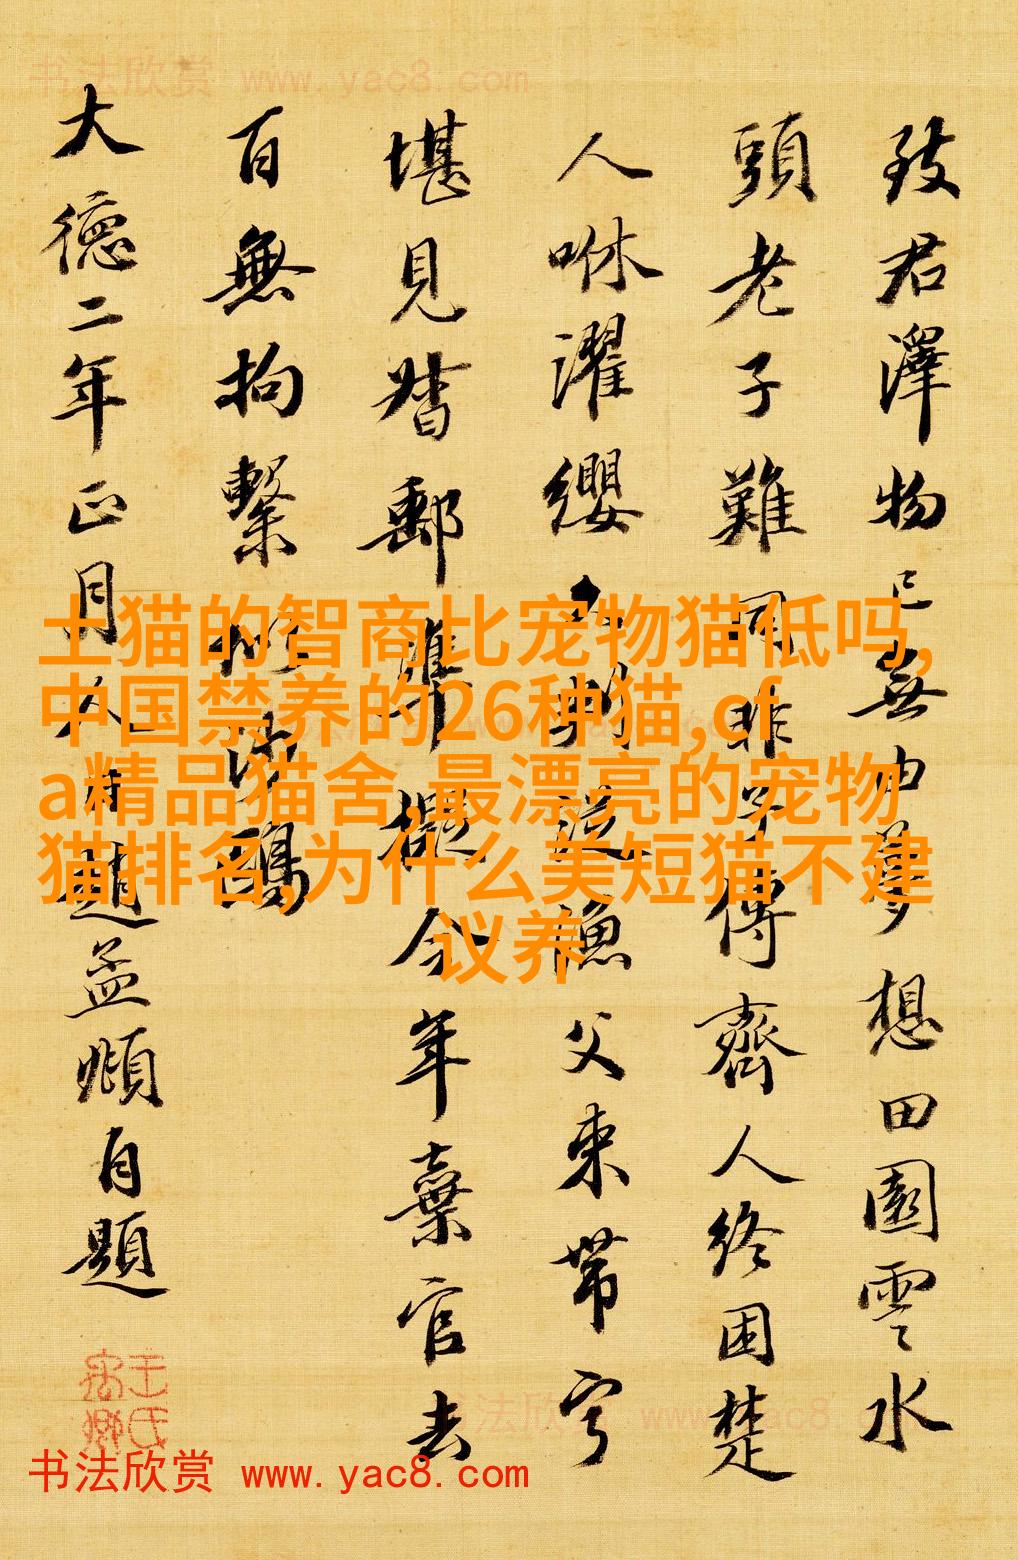 书法欣赏 www.yac8.com
致君澤物已無由夢想田園雲水
頭老子難同非子傳齊人終困楚
人咻濯纓久判從漁父束帶寧
堪見督郵準擬今年棄官去
百無拘繫似沙鷗
大德二年正月人日趙孟頫自題
土猫的智商比宠物猫低吗,
中国禁养的26种猫,cf
a精品猫舍,最漂亮的宠物
猫排名,为什么美短猫不建
议养
书法欣赏 www.yac8.com
书法欣赏 www.yac8.com